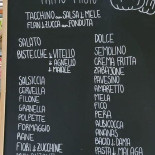 TACCHINO CON SALSA di MELE
FIORI di ZUCCA CON FONDUTA
SALATO
BISTECCHE di VITELLO
di AGNELLO
di MAIALE
SALSICCIA
CERVELLA
FILONE
GRANELLA
POLPETTE
FORMAGGIO
RANE
FIORI di ZUCCHINE
DOLCE
SEMOLINO
CREMA FRITTA
ZABAIONE
PAVESINO
AMARETTO
MELA
FICO
PERA
ALBICOCCA
ANANAS
BACIO di DAMA
PASTA di MALAGA